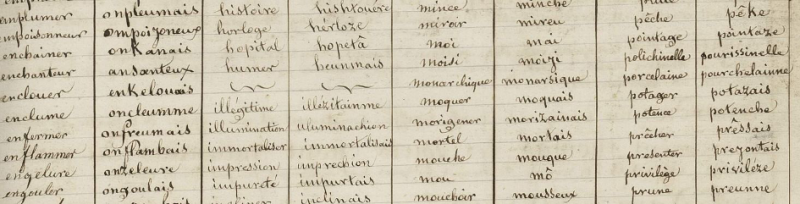 emplumer onpleumais histoire histrouére mince minche
empoisonneur ompoizoneux horloge hérloze miroir mireu pêche pêke
enchainer onkanais hopital hopetâ moi mai pointage pointaze
enchanteur ansonteux humer heunmais moisi moizi polichinelle pourissinelle
enclouer enkelouais monarchique monarsique porcelaine pourchelainne
enclume oncleumme illégitime illezitainme moquer moquais potager potazais
enfermer onfreumais illumination uluminachion morigener morizainais potence potenche
enflammer onflambais immortaliser immortalisais mortel mortais prêcher prêssais
engelure onzeleure impression imprechion mouche mouque presenter prezontais
engouler ongoulais impureté impurtais mou mô privilège privilèze
inclinais mouchoir mousseux prune preunne